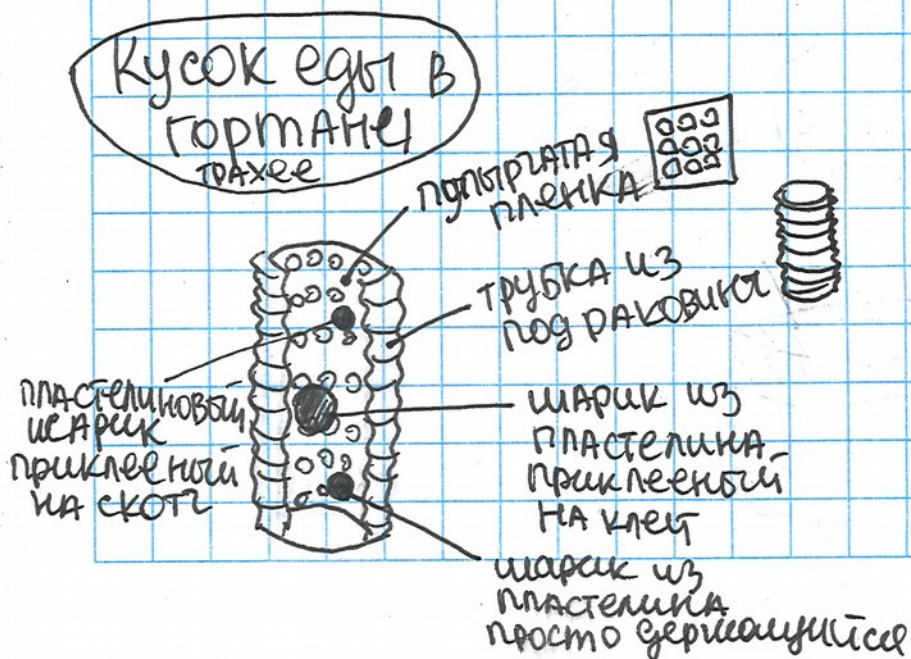 Кусок еды в
гортани
трахее
пупырчатая
пленка
трубка из
под раковины
пластелиновый
шарик
приклееный
на скотч
шарик из
пластелина
приклееный
на клей
шарик из
пластелина
просто держащийся